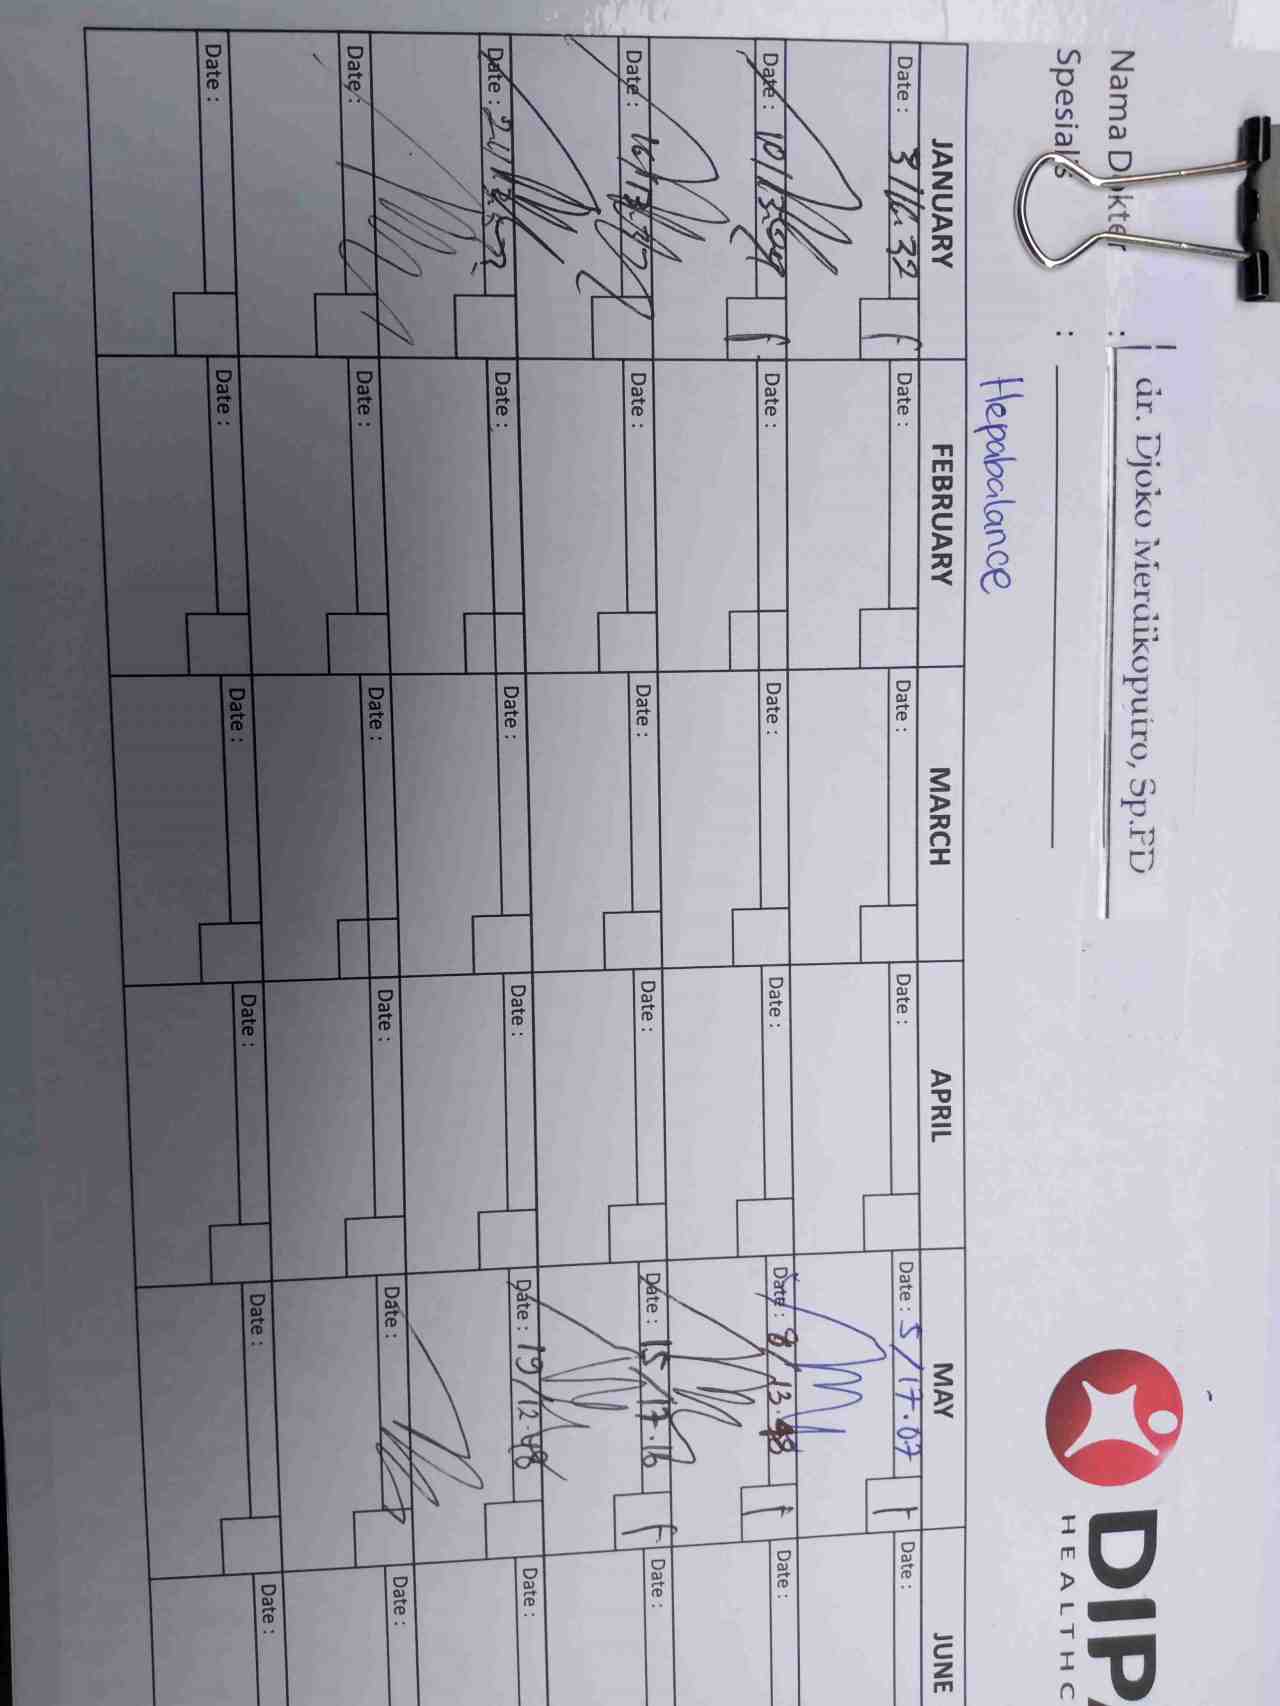 Nama Dokter : dr. Djoko Merdikoputro, Sp.PD
Spesialis :
DIPA
HEALTHC
Hepabalance
JANUARY FEBRUARY MARCH APRIL MAY JUNE
Date : 3/16.32 f Date : Date : Date : Date : 5/17.07 f Date :
Date : 10/13.48 f Date : Date : Date : Date : 8/13.48 f Date :
Date : 16/ Date : Date : Date : Date : 15/17.16 f Date :
Date : Date : Date : Date : Date : 19/12.48 Date :
Date : Date : Date : Date : Date : Date :
Date : Date : Date : Date : Date : Date :